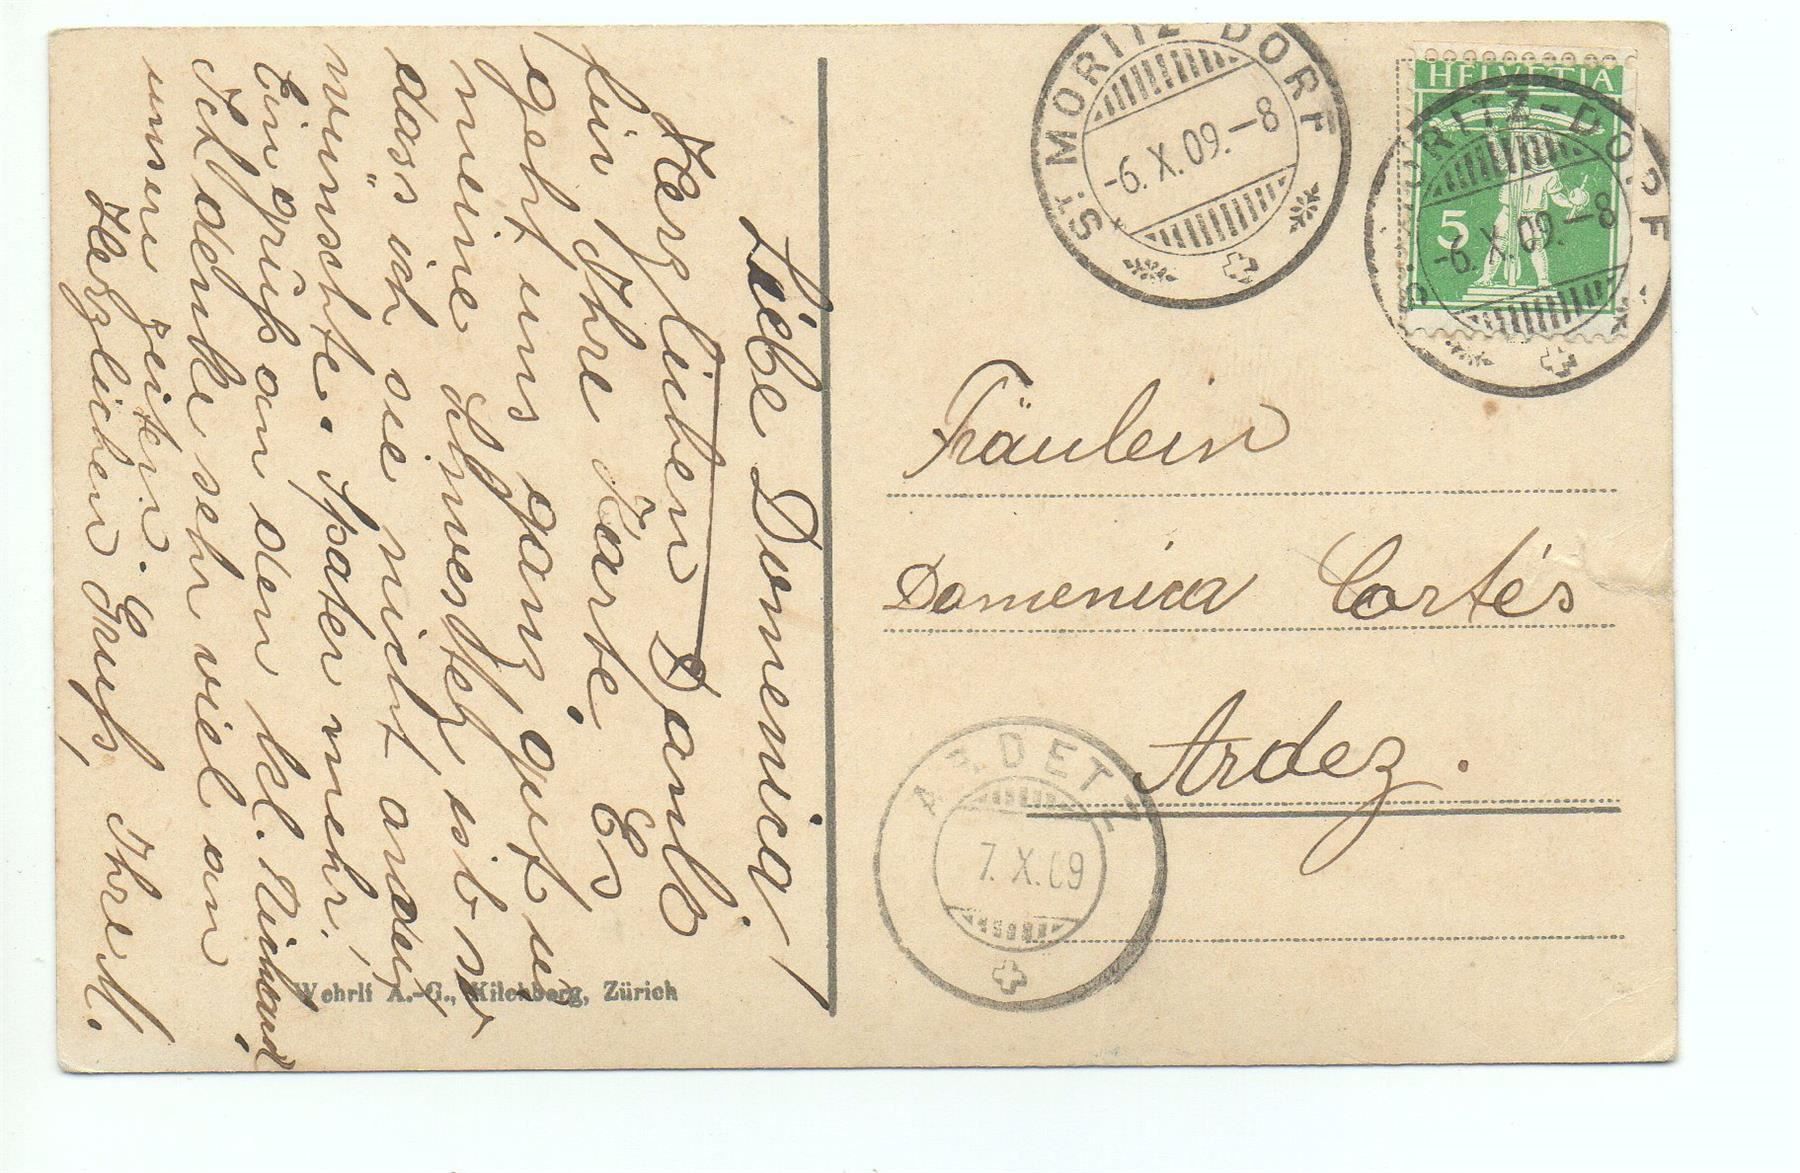 Liebe Domenica!
Herzlieben Dank
für Ihre Karte. Es
geht uns ganz gut u.
meine Schwester, ist so
dass ich sie nicht anders
wünschte. Später mehr.
Ein gruss an den kl. Richard.
Ich denke sehr viel an
unsere zeiten.
Herzlichen Gruss, Ihre M.
Wehrli A.-G., Kilchberg, Zürich
ST. MORITZ-DORF
-6.X.09.-8
HELVETIA
5
ST. MORITZ-DORF
-6.X.09.-8
Fräulein
Domenica Cortés
Ardez.
ARDETZ
7.X.09